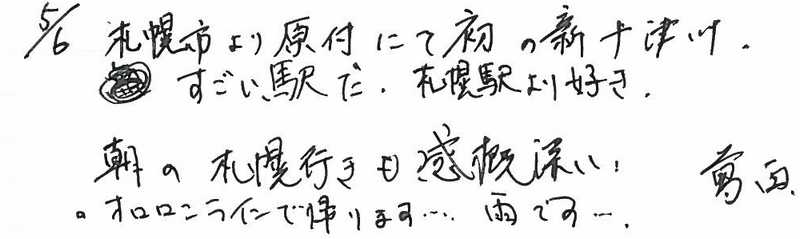 5/6 札幌市より原付にて初の新十津川.
すごい駅だ. 札幌駅より好き.
朝の札幌行きも感慨深い!
。オロロンラインで帰ります… 雨です….